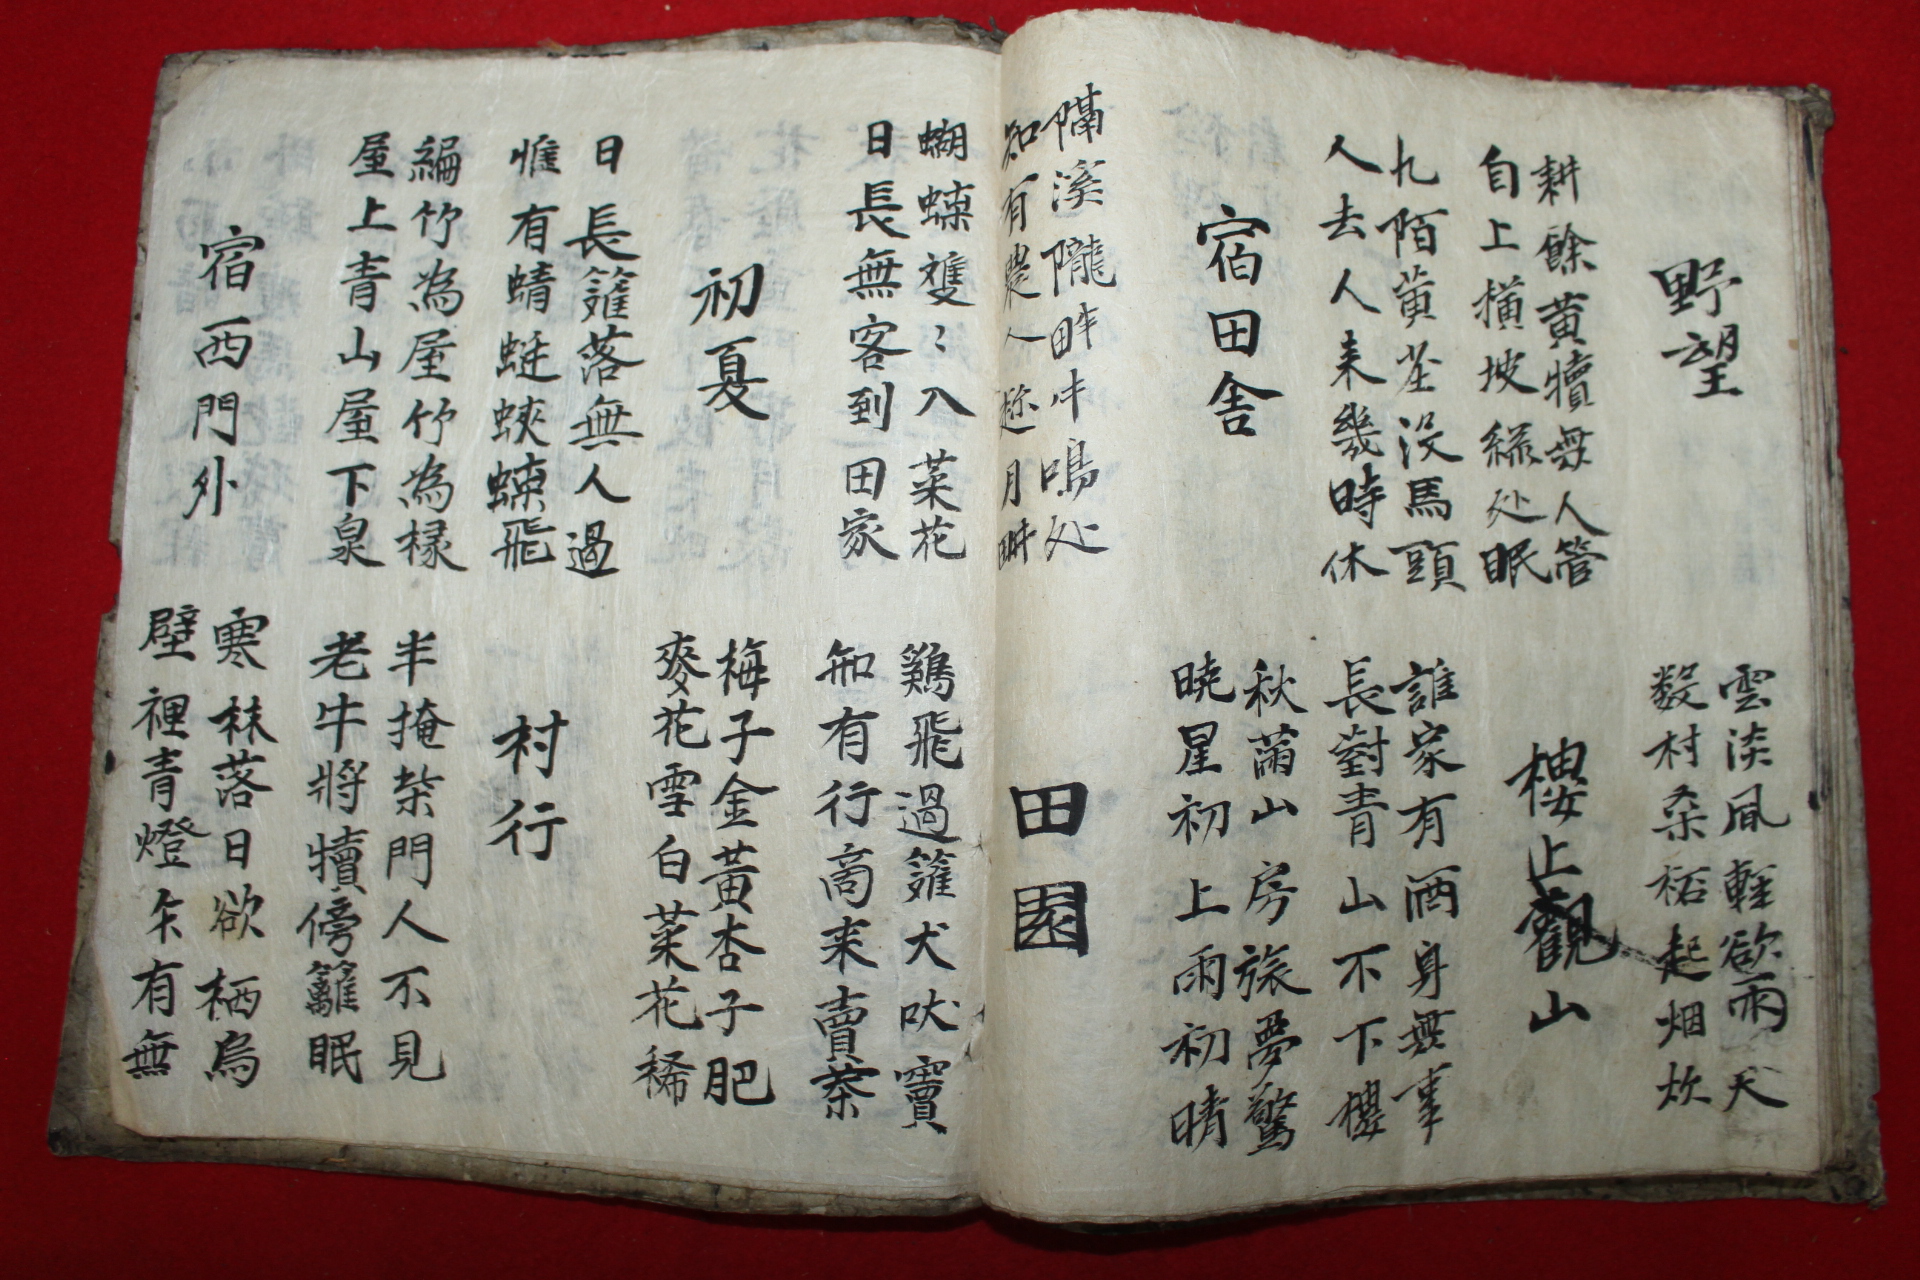 野望
雲淡風輕欲雨天
数村桑柘起烟炊
耕餘黄犢無人管
自上横坡緑处眠
樓上觀山
九陌黄塵没馬頭
人去人来幾時休
誰家有酒身無事
長對青山不下樓
宿田舍
秋滿山房旅夢驚
曉星初上雨初晴
隔溪隴畔牛鳴处
知有農人趂月耕
田園
蝴蝶雙〻入菜花
日長無客到田家
鷄飛過籬犬吠竇
知有行商来賣茶
初夏
梅子金黃杏子肥
麥花雪白菜花稀
日長籬落無人過
惟有蜻蜓蛺蝶飛
村行
編竹為屋竹為椽
屋上青山屋下泉
半掩柴門人不見
老牛將犢傍籬眠
宿西門外
寒林落日欲栖烏
壁裡青燈乍有無